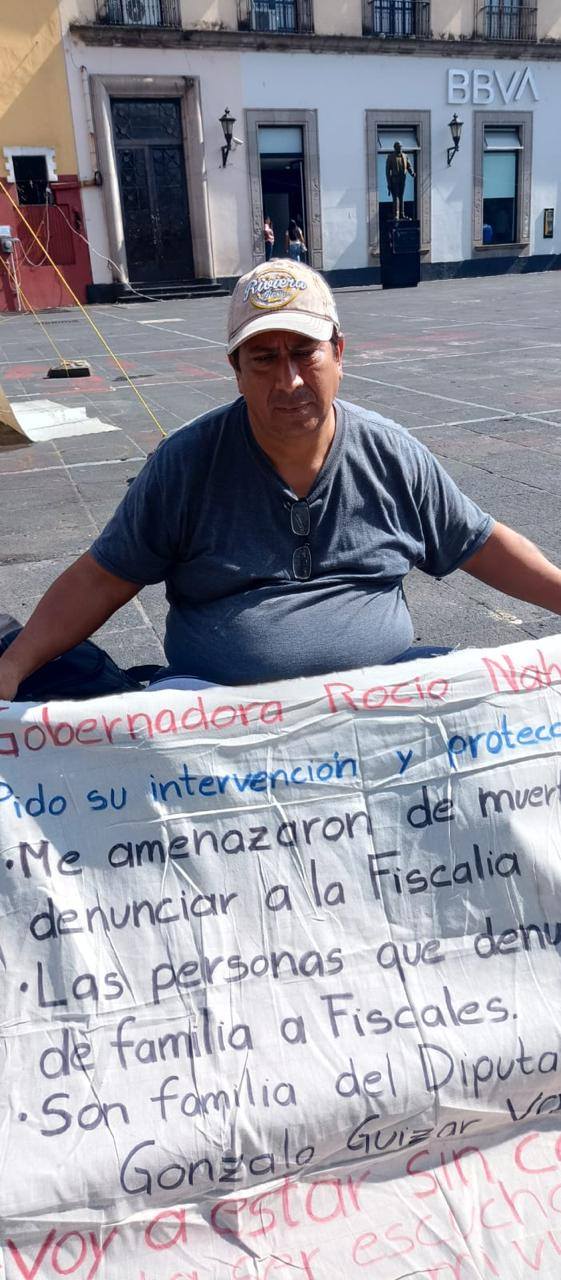 BBVA
Riviera
Gobernadora Rocio Nah
Pido su intervención y protecc
• Me amenazaron de muer
denunciar a la Fiscalia
• Las personas que denu
de familia a Fiscales.
• Son familia del Diputa
Gonzalo Guizar
Voy a estar sin co
ser escucha